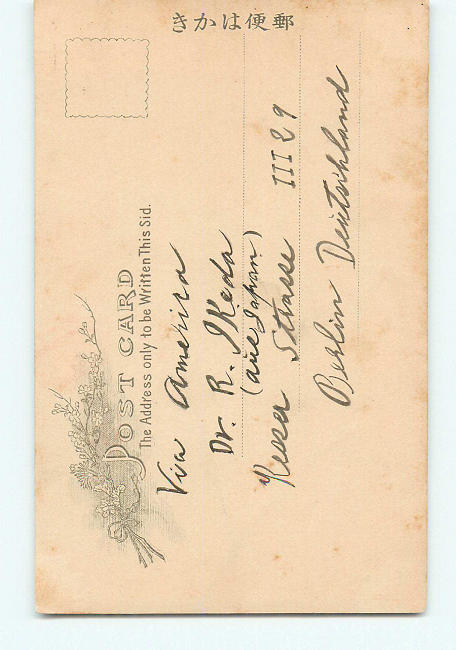 きかは便郵
POST CARD
The Address only to be Written This Sid.
Via America
Dr. R. Ikeda
(aus Japan)
Strasse III 29
Berlin Deutschland